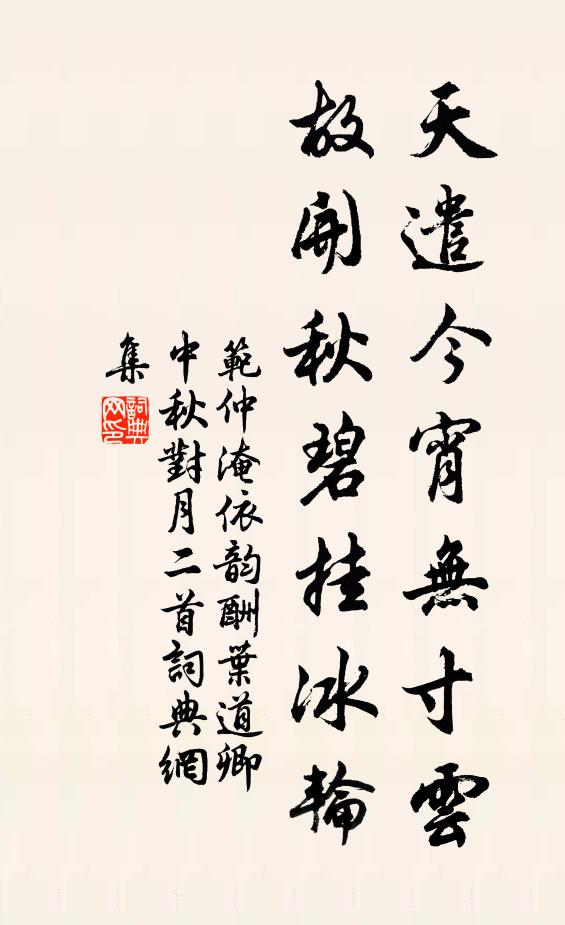 天遣今宵無寸雲
故開秋碧挂冰輪
範仲淹依韵酬葉道卿
中秋對月二首詞典網
集
詞典
网印